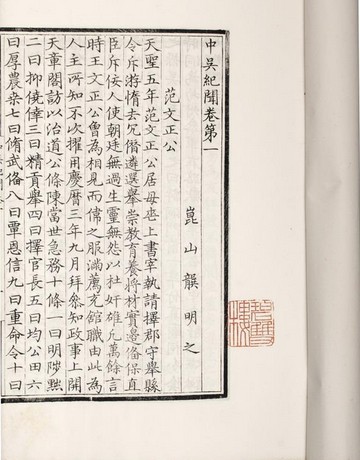 中吳紀聞卷第一
崑山龔明之
范文正公
天聖五年范文正公居母喪上書宰執請擇郡守舉縣
令斥游惰去冗僭遴選舉崇教育養將材實邊備保直
臣斥佞人使朝廷無過生靈無怨以杜奸雄凡萬餘言
時王文正公曾為相見而偉之服滿薦充館職由此為
人主所知不次擢用慶曆三年九月拜叅知政事上開
天章閣訪以治道公條陳當世急務十條一曰明陟黜
二曰抑僥倖三曰精貢舉四曰擇官長五曰均公田六
曰厚農桑七曰脩武備八曰覃恩信九曰重命令十曰